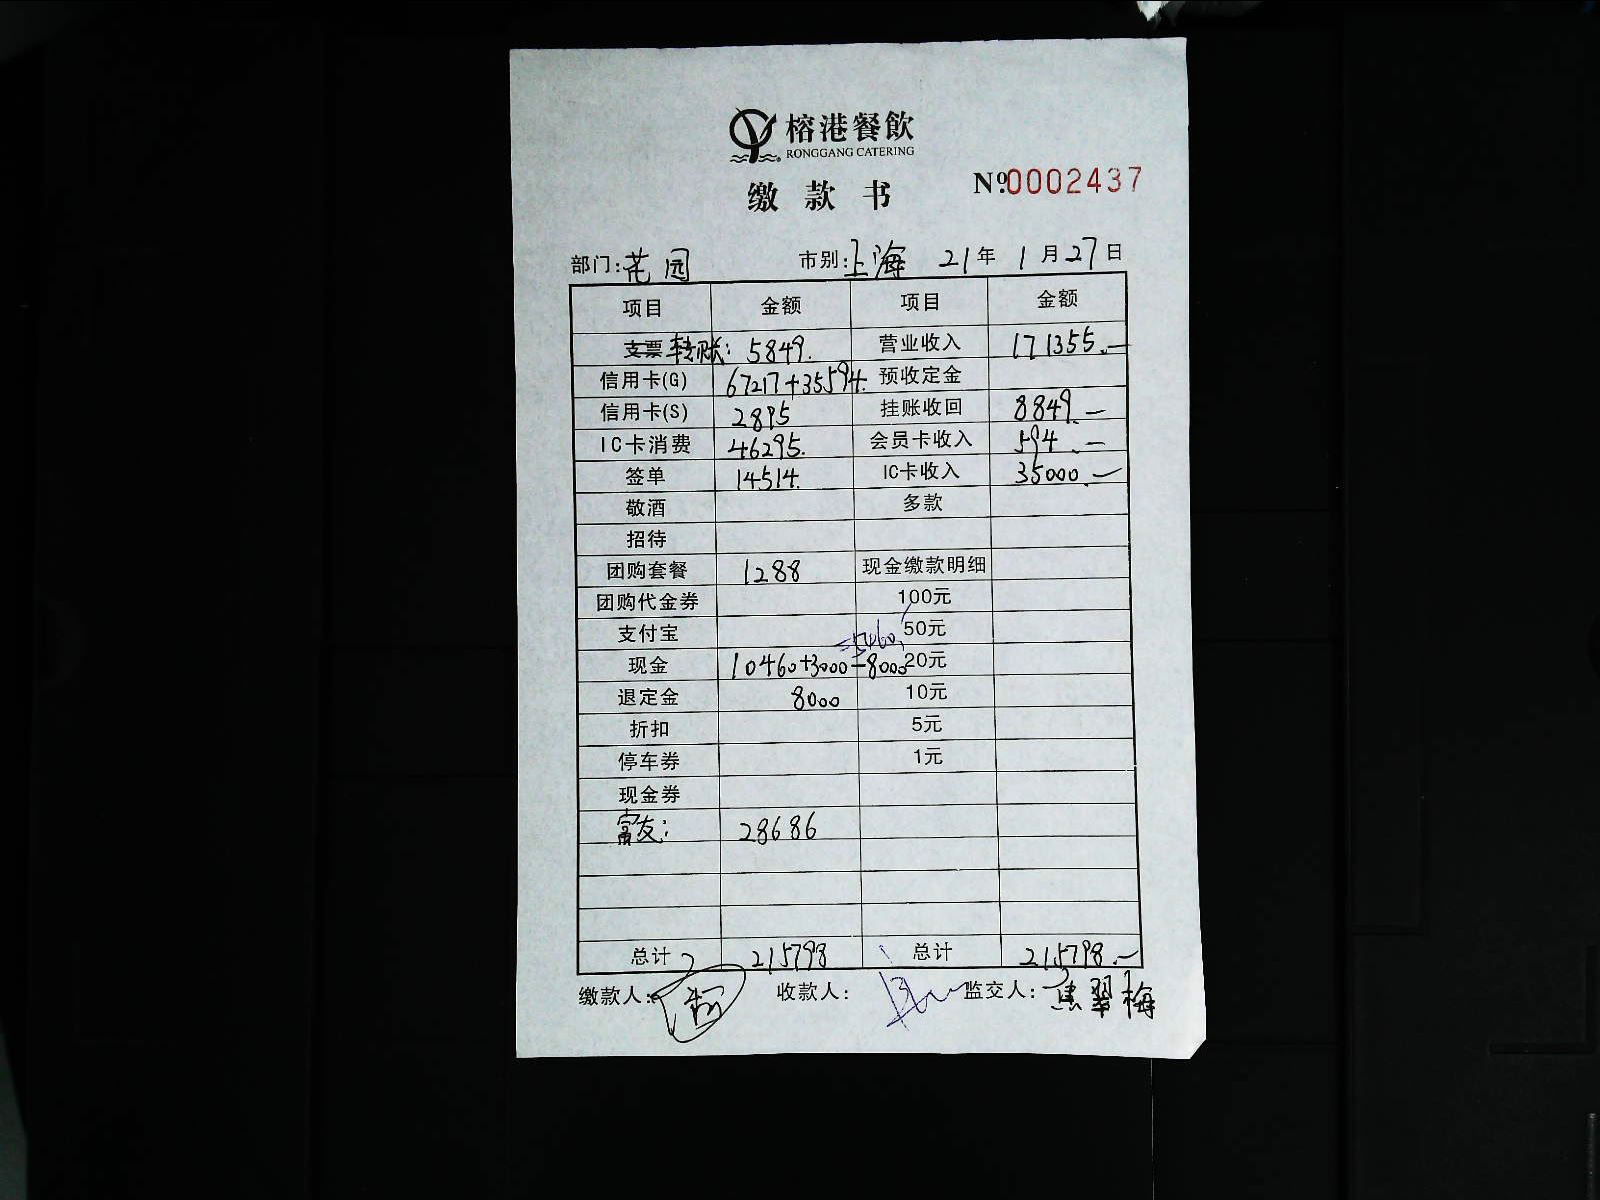 榕港餐飲
RONGGANG CATERING
缴款书 Nº 0002437
部门: 花园 市别: 上海 21年 1月27日
项目 金额 项目 金额
支票 转账: 5849. 营业收入 171355.—
信用卡(G) 67217+35594. 预收定金
信用卡(S) 2895 挂账收回 8849.—
IC卡消费 46295. 会员卡收入 594.—
签单 14514. IC卡收入 35000.—
敬酒 多款
招待
团购套餐 1288 现金缴款明细
团购代金券 100元
支付宝 =5460. 50元
现金 10460+3000-8000 20元
退定金 8000 10元
折扣 5元
停车券 1元
现金券
富友: 28686
总计 215798 总计 215798.—
缴款人: 收款人: 监交人: 翠梅